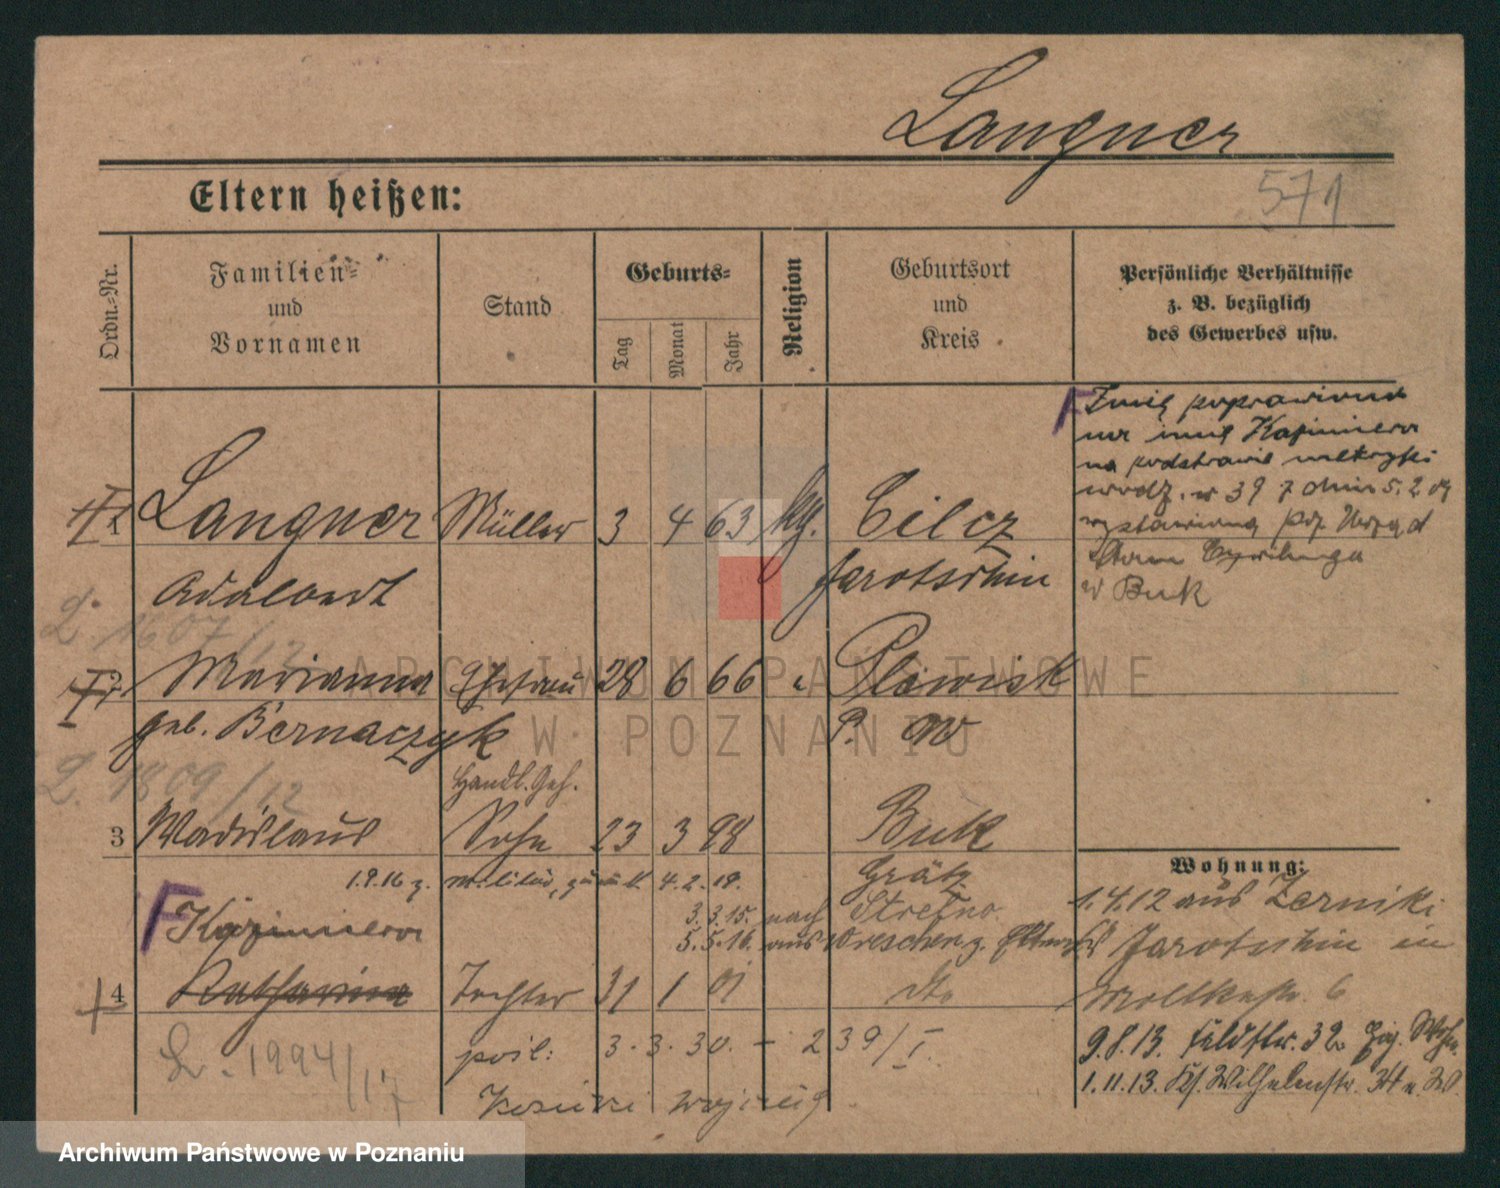 Langner
571
Eltern heißen:
Ordn.=Nr.
Familien=
und
Vornamen
Stand
Geburts=
Tag
Monat
Jahr
Religion
Geburtsort
und
Kreis
Persönliche Verhältnisse
z. B. bezüglich
des Gewerbes usw.
F Imię poprawiono
na imię Kazimiera
na podstawie metryki
urodz. nr 39 z dnia 5. 2 01
wystawioną prz. Urząd
Stanu Cywilnego
w Buk
1 Langner Müller 3 4 63 kg. Cilcz
Adalbert Jarotschin
L. 1607/12
2 Marianna Ehefrau 28 6 66 " Plawisk
geb. Bernaczyk P. W
L. 1809/12
Handl. Geh.
3 Wadislaus Sohn 23 3 98 Buk
1.9.16 z. Militär, zurück 4.2.18. Grätz
3.3.15. nach Strelno
F Kazimiera 5.5.16. aus Wreschen z. Eltern
4 Katharina Tochter 31 1 01 dto
L. 1994/17
3. 3. 30. – 239/I.
Wohnung:
1.4.12 aus Zerniki
Krs Jarotschin in
Moltkestr. 6
9.8.13. Feldstr. 32
1.11.13. Wilhelmstr. 34
ARCHIWUM PAŃSTWOWE
W POZNANIU
Archiwum Państwowe w Poznaniu